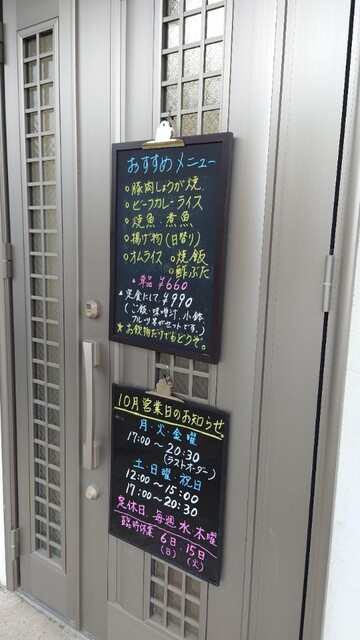 おすすめメニュー
○豚肉しょうが焼
○ビーフカレーライス
○焼魚・煮魚
○揚げ物(日替り)
○オムライス ○焼飯
○酢ぶた
▲単品 ¥660
▲定食にして ¥990
(ご飯・味噌汁、小鉢
フルーツ等がセットです。)
★お飲物だけでもどうぞ。
10月営業日のお知らせ
月・火・金曜
17:00〜20:30
(ラストオーダー)
土・日曜・祝日
12:00〜15:00
17:00〜20:30
定休日、毎週 水木曜
臨時休業 6日・15日
(日) (火)